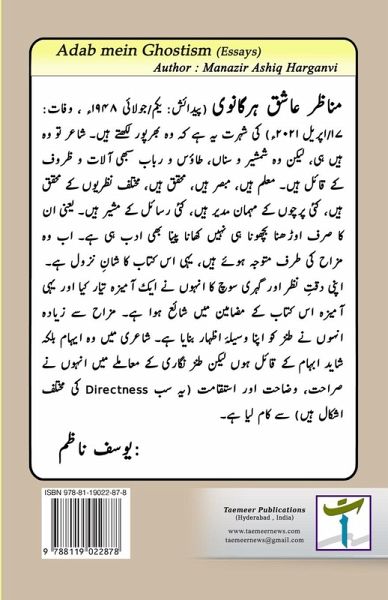 Adab mein Ghostism (Essays)
Author : Manazir Ashiq Harganvi
مناظر عاشق ہرگانوی (پیدائش: یکم/جولائی ۱۹۴۸ء ، وفات:
۱۷/اپریل ۲۰۲۱ء) کی شہرت یہ ہے کہ وہ بھرپور لکھتے ہیں۔ شاعر تو وہ
ہیں ہی، لیکن وہ شمشیر و سناں، طاؤس و رباب سبھی آلات و ظروف
کے قائل ہیں۔ معلم ہیں، مبصر ہیں، محقق ہیں، مختلف نظریوں کے محقق
ہیں، کئی پرچوں کے مہمان مدیر ہیں، کئی رسائل کے مشیر ہیں۔ یعنی ان
کا صرف اوڑھنا بچھونا ہی نہیں کھانا پینا بھی ادب ہی ہے۔ اب وہ
مزاح کی طرف متوجہ ہوئے ہیں، یہی اس کتاب کا شانِ نزول ہے۔
اپنی وقتِ نظر اور گہری سوچ کا انہوں نے ایک آمیزہ تیار کیا اور یہی
آمیزہ اس کتاب کے مضامین میں شائع ہوا ہے۔ مزاح سے زیادہ
انہوں نے طنز کو اپنا وسیلۂ اظہار بنایا ہے۔ شاعری میں وہ ایہام بلکہ
شاید ابہام کے قائل ہوں لیکن طنز نگاری کے معاملے میں انہوں نے
صراحت، وضاحت اور استقامت (یہ سب Directness کی مختلف
اشکال ہیں) سے کام لیا ہے۔
:یوسف ناظم
ISBN 978-81-19022-87-8
9 788119 022878
Taemeer Publications
(Hyderabad , India)
www.taemeernews.com
taemeernews@gmail.com